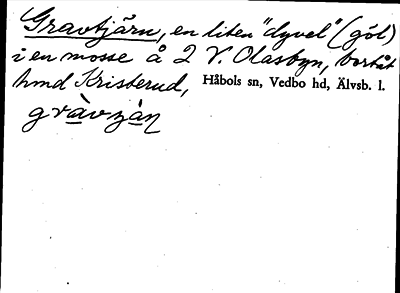 Gravtjärn, en liten "dyvel" (göl)
i en mosse å 2 V. Olasbyn, bortåt
hmd Kristerud, Håbols sn, Vedbo hd, Älvsb. l.